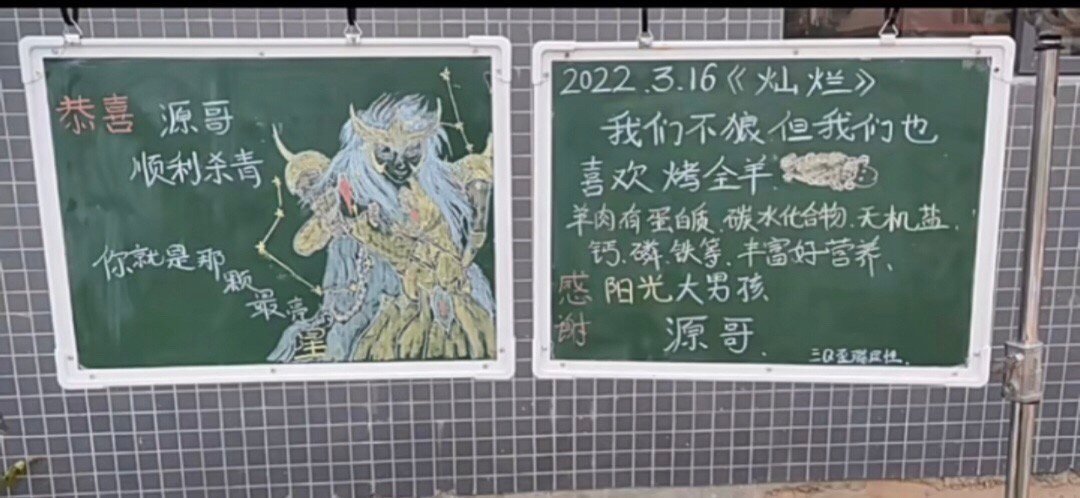 恭喜 源哥
顺利杀青
你就是那
颗
最亮
星
2022.3.16《灿烂》
我们不狼但我们也
喜欢烤全羊
羊肉有蛋白质、碳水化合物、无机盐、
钙、磷、铁等、丰富好营养、
感 阳光大男孩
谢 源哥